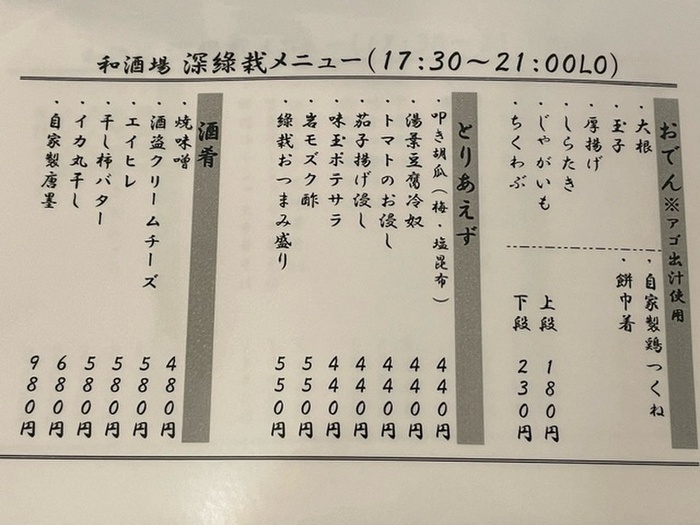 和酒場 深緑栽メニュー(17:30～21:00LO)
おでん※アゴ出汁使用
・大根
・玉子
・厚揚げ
・しらたき
・じゃがいも
・ちくわぶ
・自家製鶏つくね
・餅巾着
上段 180円
下段 230円
とりあえず
・叩き胡瓜(梅・塩昆布) 440円
・湯葉豆腐冷奴 440円
・トマトのお浸し 440円
・茄子揚げ浸し 440円
・味玉ポテサラ 440円
・岩モズク酢 550円
・緑栽おつまみ盛り 550円
酒肴
・焼味噌 480円
・酒盗クリームチーズ 580円
・エイヒレ 580円
・干し柿バター 580円
・イカ丸干し 680円
・自家製唐墨 980円